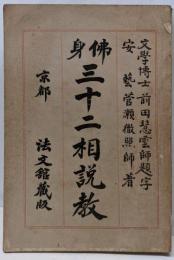 文學博士 前田慧雲師題字
安藝 菅瀬徹照師著
佛身 三十二相説教
京都 法文館蔵版